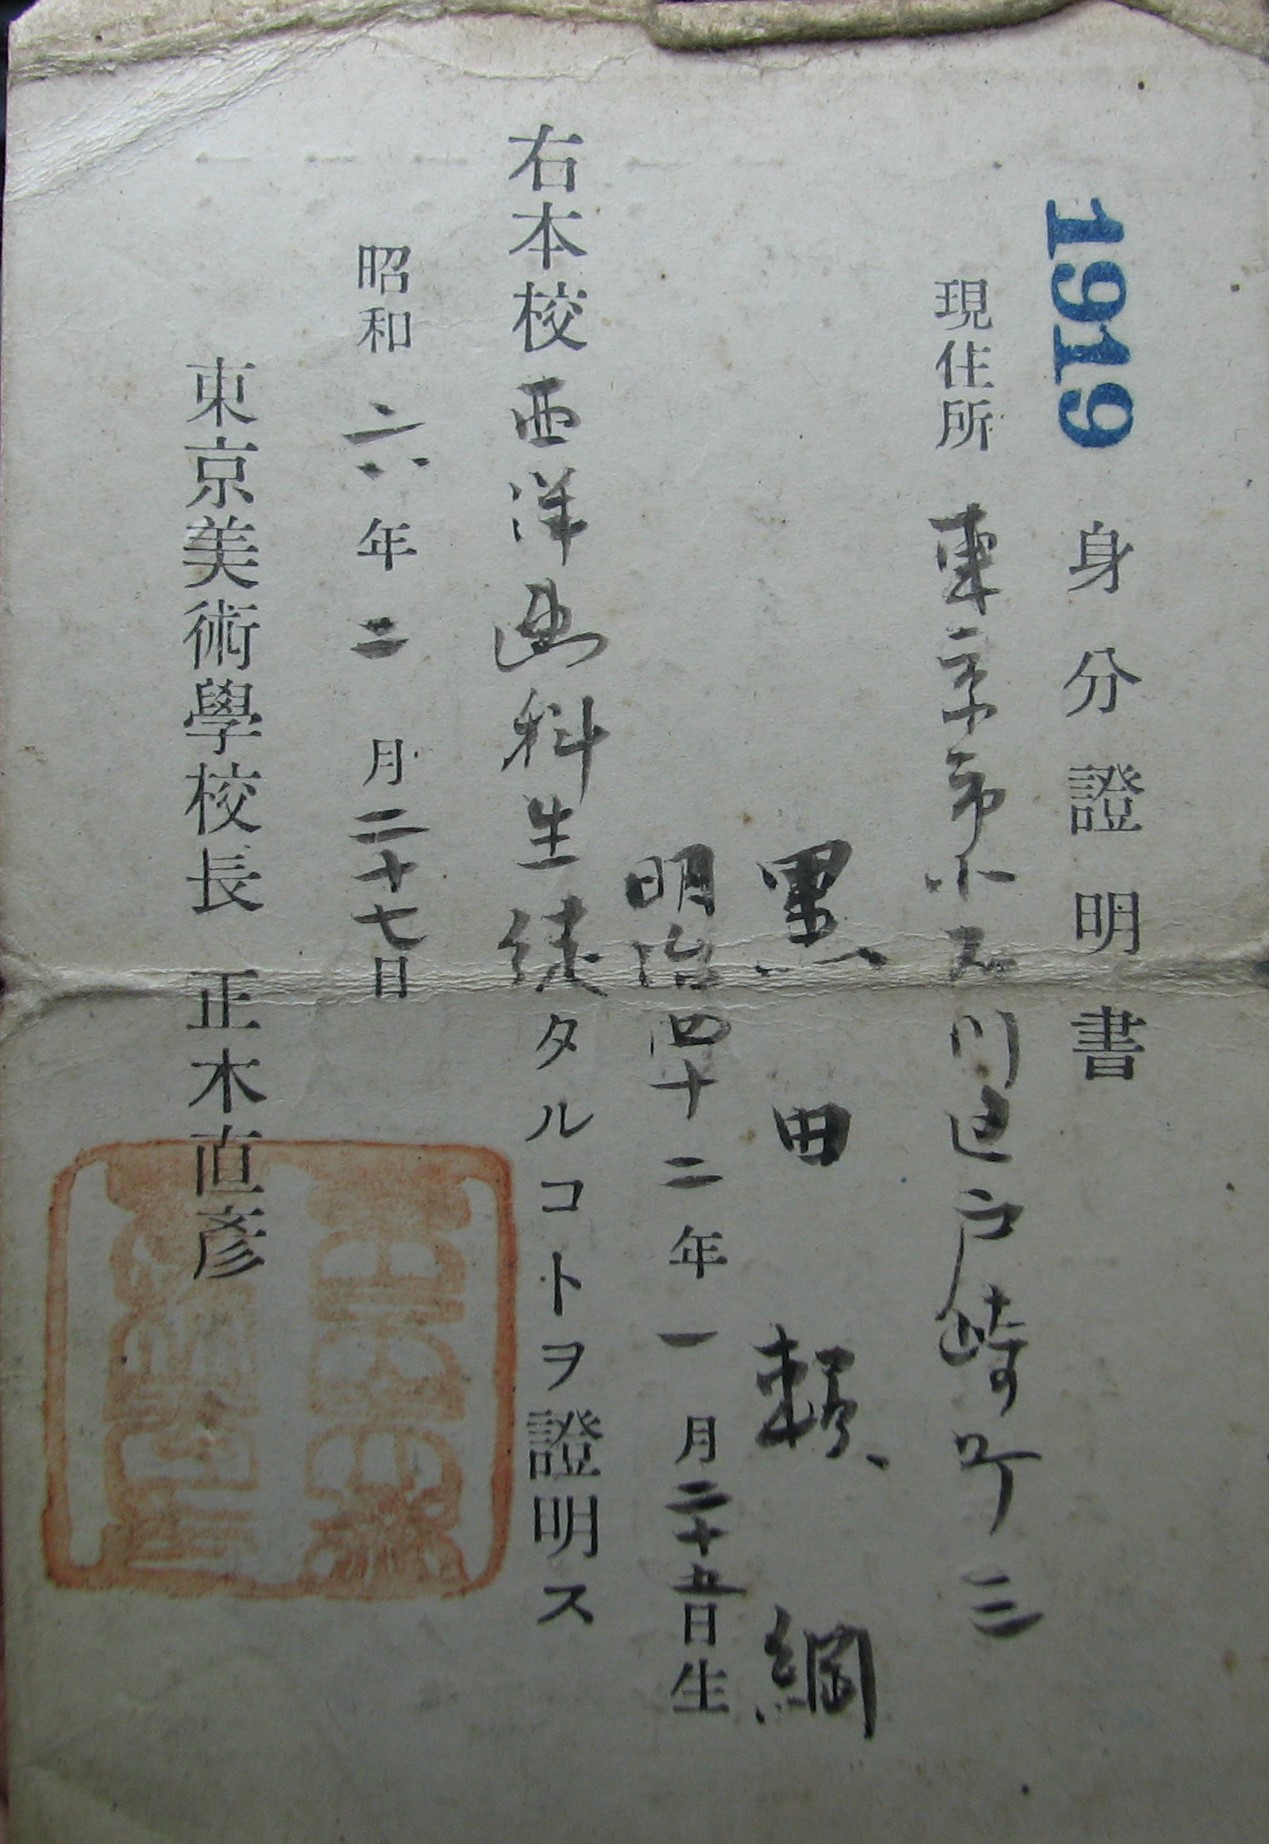 1919
身分證明書
現住所 東京市小石川区戸崎町三
黒田頼綱
明治四十二年一月二十五日生
右本校西洋画科生徒タルコトヲ證明ス
昭和六年二月二十七日
東京美術學校長 正木直彦